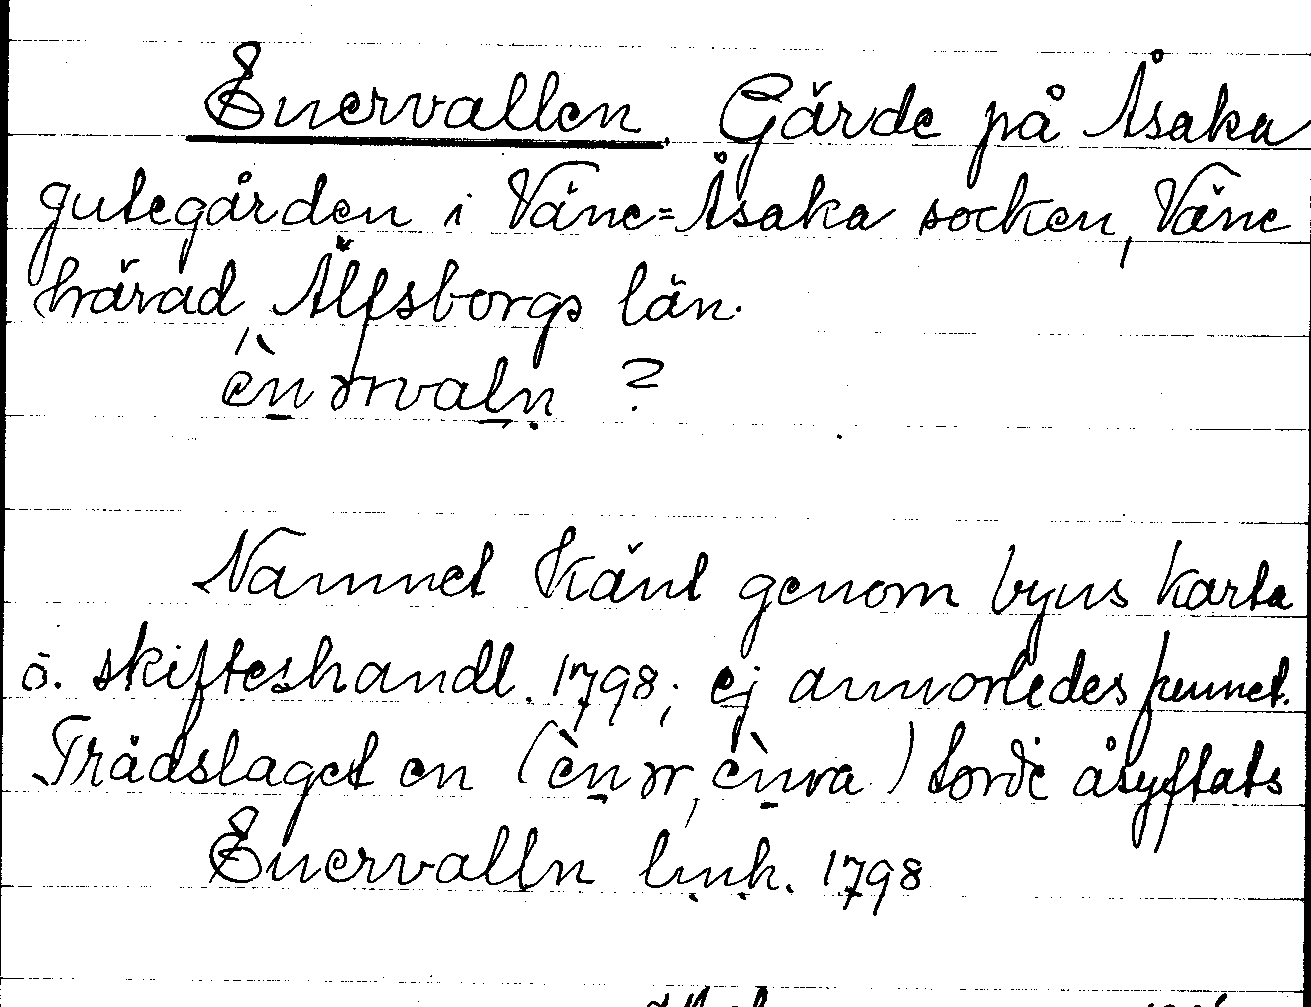 Enervallen. Gärde på Åsaka
gutegården i Väne=Åsaka socken, Väne
härad, Älfsborgs län.
èn ərvaln ?
Namnet känt genom byns karta
o. skifteshandl. 1798; ej annorledes funnet.
Trädslaget en (èn ər, ènra) torde åsyftats
Enervalln link. 1798